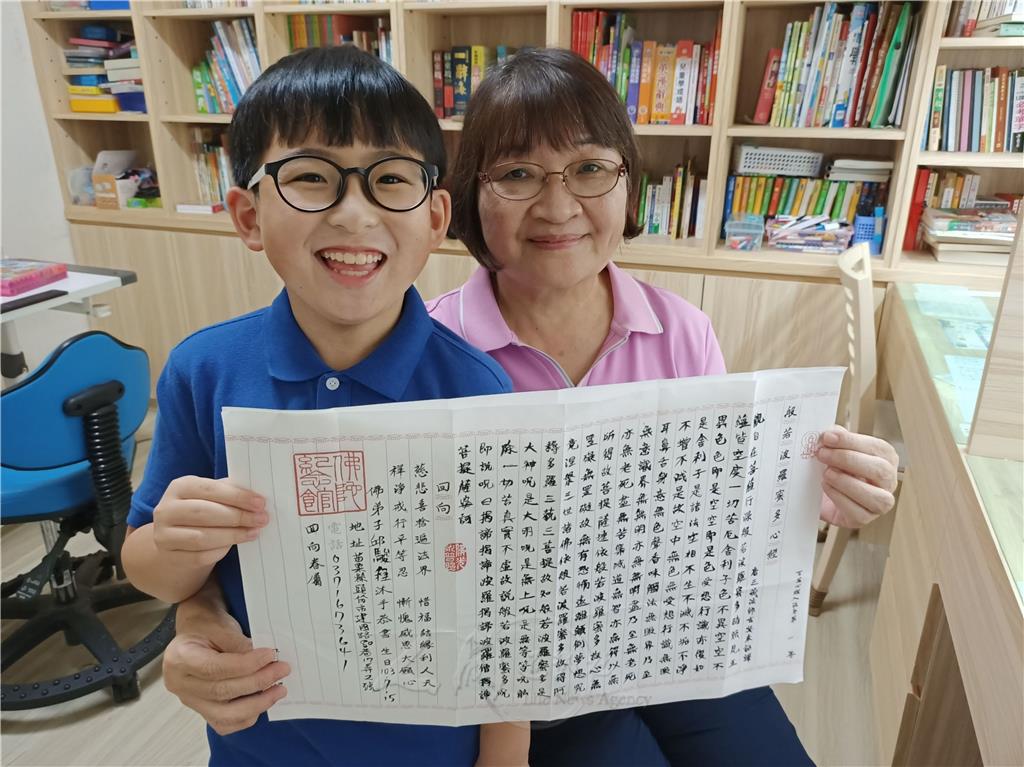 般若波羅蜜多心經
唐三藏法師玄奘奉詔譯
觀自在菩薩行深般若波羅蜜多時照見五
蘊皆空度一切苦厄舍利子色不異空空不
異色色即是空空即是色受想行識亦復如
是舍利子是諸法空相不生不滅不垢不淨
不增不減是故空中無色無受想行識無眼
耳鼻舌身意無色聲香味觸法無眼界乃至
無意識界無無明亦無無明盡乃至無老死
亦無老死盡無苦集滅道無智亦無得以無
所得故菩提薩埵依般若波羅蜜多故心無
罣礙無罣礙故無有恐怖遠離顛倒夢想究
竟涅槃三世諸佛依般若波羅蜜多故得阿
耨多羅三藐三菩提故知般若波羅蜜多是
大神呪是大明呪是無上呪是無等等呪能
除一切苦真實不虛故說般若波羅蜜多呪
即說呪曰揭諦揭諦波羅揭諦波羅僧揭諦
菩提薩婆訶
回向
慈悲喜捨遍法界 惜福結緣利人天
禪淨戒行平等忍 慚愧感恩大願心
佛弟子邱駿程沐手恭書 生日103.9.15
地址苗栗縣頭份市建國路
電話037673641
回向眷屬
佛陀
紀念館
Life News Agency